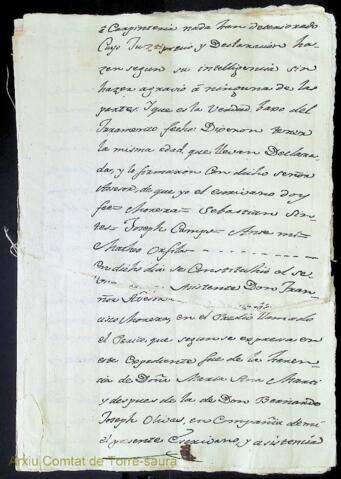 ê Carpinteria nada han desmejorado
Cuyo Juzto precio y Declaracion ha-
zen segun su intelligencia sin
hazer agravio â ninguna de las
partes. Y que es la verdad baxo del
Juramento fecho: Dixeron tener
la misma edad, que llevan Declara-
da, y lo firmaron con dicho señor
Asesor, de que yo el escrivano doy
fee= Morera= Sebastian Sin-
tes= Joseph Camps= Ante mi=
Matheo Orfila
En dicho dia se Constituhio el se-
ñor Asistente Don Fran-
cisco Morera, en el Predio llamado
el Perico, que segun se expresa en
este Expediente fue de la heren-
cia de Doña Maria Ana Marti
y despues de la de Don Bernardo
Joseph Olives, en Compañia de mi
el presente Escrivano, y asistencia
Arxiu Comtat de Torre-saura